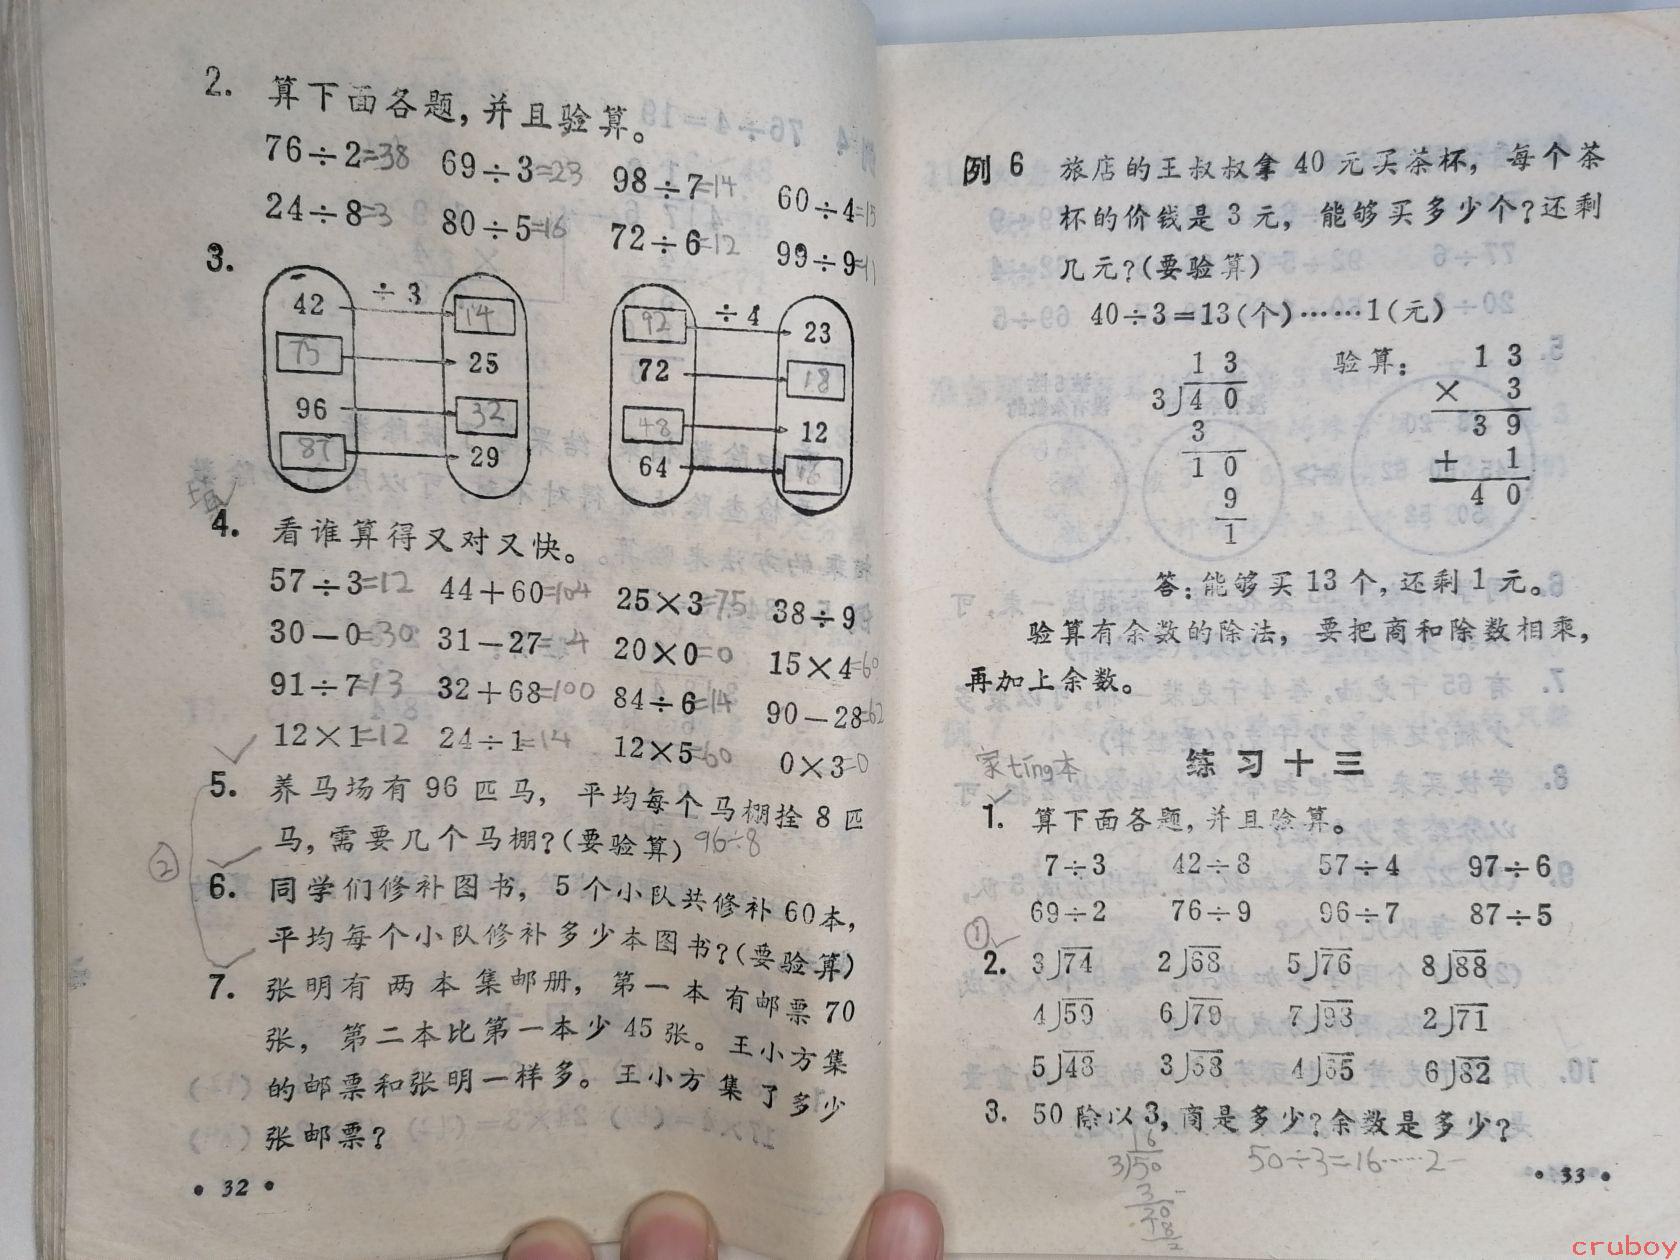 2. 算下面各题,并且验算。
76÷2=38 69÷3=23 98÷7=14 60÷4=15
24÷8=3 80÷5=16 72÷6=12 99÷9=11
3.
÷3 ÷4
42 14 92 23
75 25 72 18
96 32 48 12
87 29 64 16
4. 看谁算得又对又快。
57÷3=12 44+60=104 25×3=75 38÷9
30-0=30 31-27=4 20×0=0 15×4=60
91÷7=13 32+68=100 84÷6=14 90-28=62
12×1=12 24÷1=14 12×5=60 0×3=0
5. 养马场有96匹马, 平均每个马棚拴8匹
马,需要几个马棚?(要验算) 96÷8
②
6. 同学们修补图书, 5个小队共修补60本,
平均每个小队修补多少本图书?(要验算)
7. 张明有两本集邮册, 第一本有邮票70
张, 第二本比第一本少45张。王小方集
的邮票和张明一样多。王小方集了多少
张邮票?
• 32 •
例6 旅店的王叔叔拿40元买茶杯, 每个茶
杯的价钱是3元, 能够买多少个?还剩
几元?(要验算)
40÷3=13(个)……1(元)
13 验算: 13
3)40 × 3
3 39
10 + 1
9 40
1
答:能够买13个,还剩1元。
验算有余数的除法, 要把商和除数相乘,
再加上余数。
家tíng本 练习十三
1. 算下面各题,并且验算。
7÷3 42÷8 57÷4 97÷6
69÷2 76÷9 96÷7 87÷5
①
2. 3)74 2)68 5)76 8)88
4)59 6)79 7)93 2)71
5)48 3)58 4)65 6)82
3. 50除以3,商是多少?余数是多少?
16
3)50 50÷3=16……2
3
20
18
2
• 33 •
cruboy